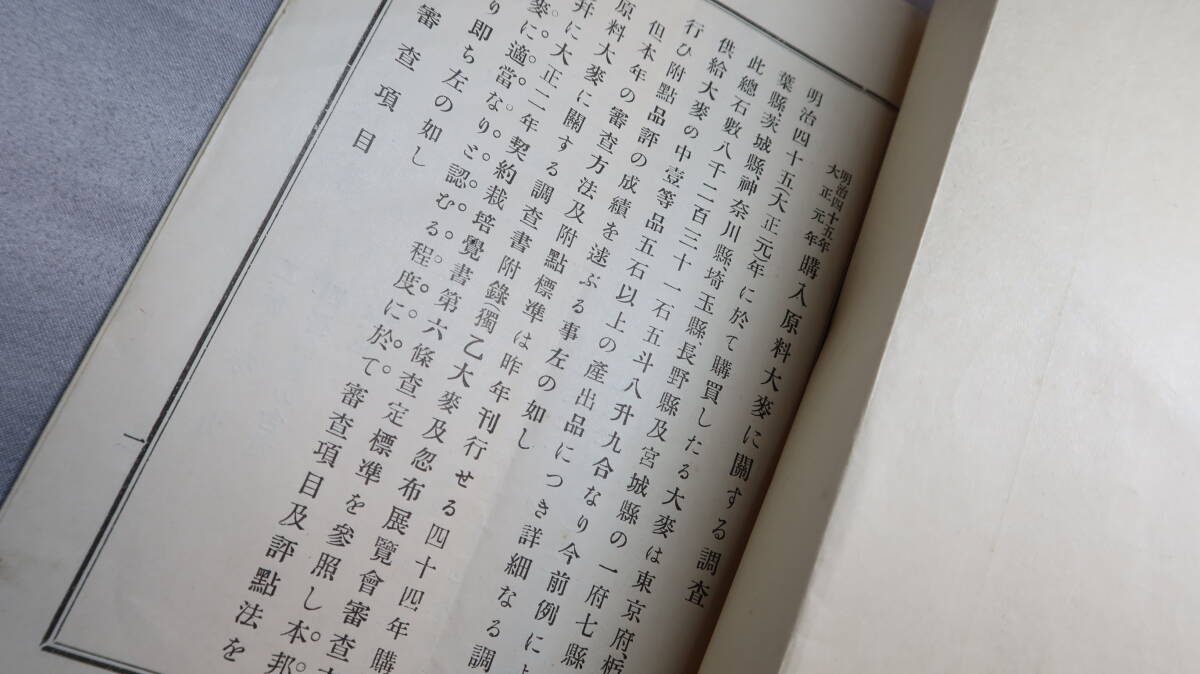 明治四十五年
大正元年 購入原料大麥に關する調査
明治四十五(大正元)年に於て購買したる大麥は東京府、栃
葉縣、茨城縣、神奈川縣、埼玉縣、長野縣及宮城縣の一府七縣
此總石數八千二百三十一石五斗八升九合なり今前例に
供給大麥の中壹等品五石以上の產出品につき詳細なる調
行ひ附點品評の成績を述ぶる事左の如し
但本年の審查方法及附點標準は昨年刊行せる四十四年購
原料大麥に關する調查書附錄(獨乙大麥及忽布展覽會審查
幷に大正二年契約栽培覺書第六條查定標準を參照し本邦
麥に適當なりと認むる程度に於て審查項目及評點法を
り卽ち左の如し
審查項目
一